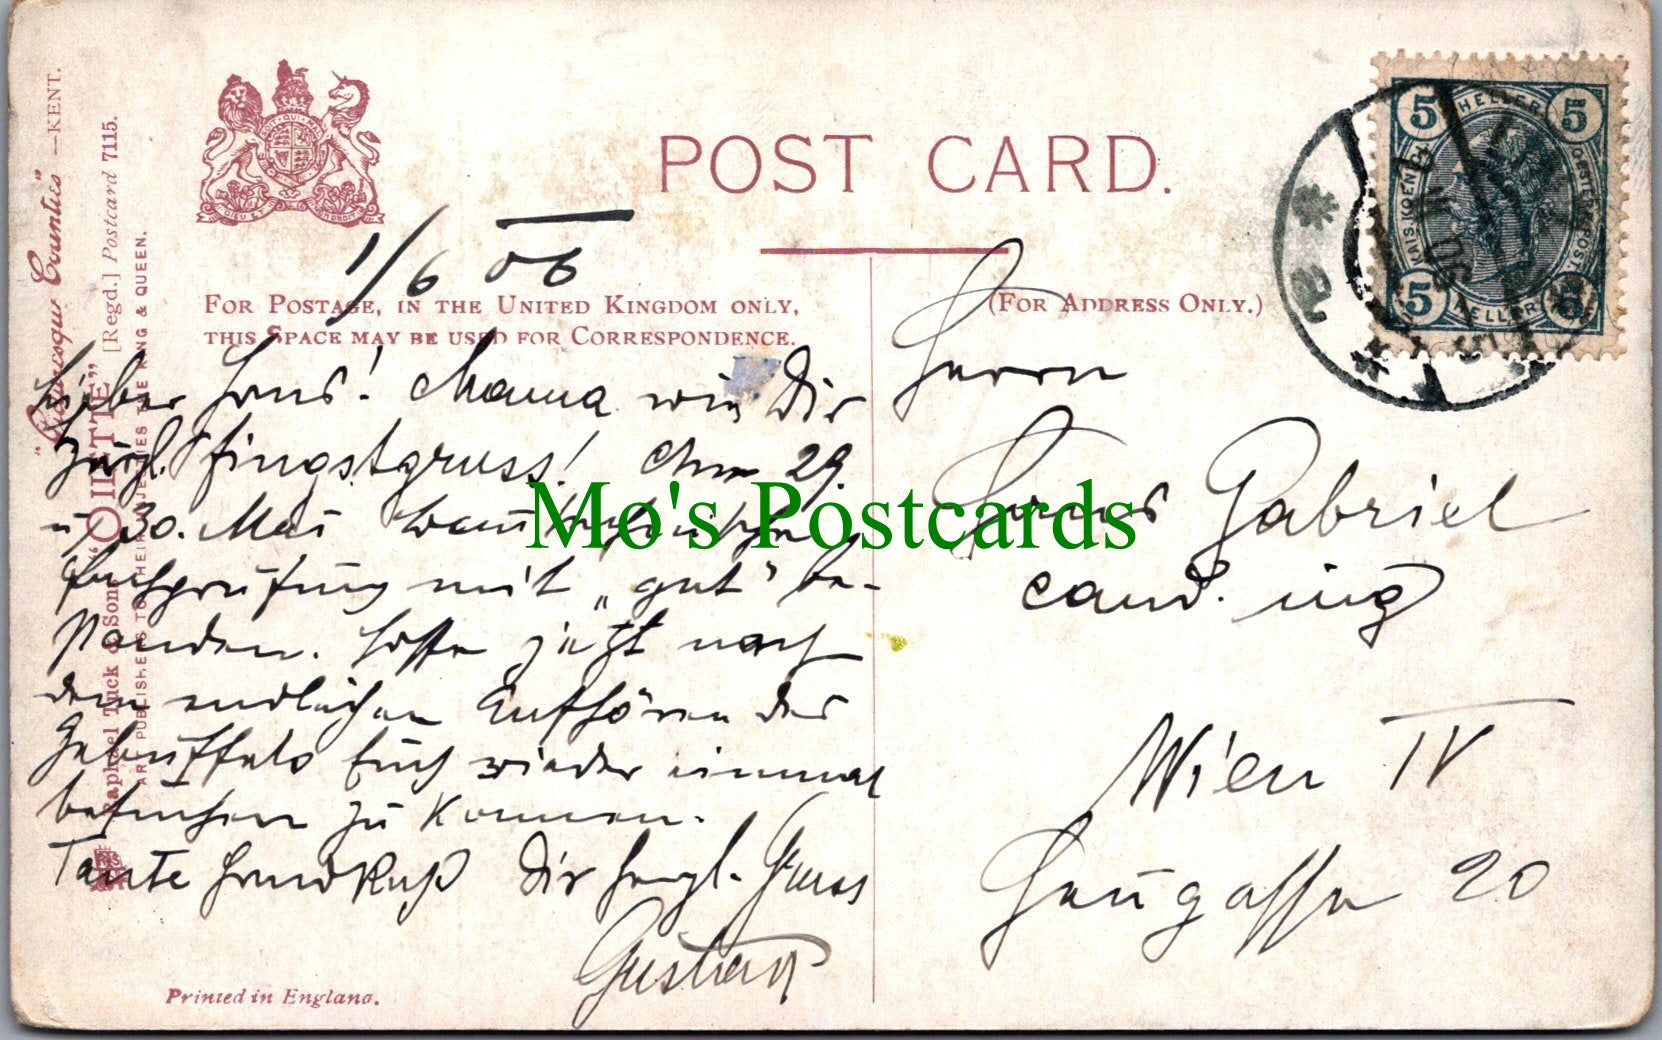 POST CARD.
1/6 06
FOR POSTAGE, IN THE UNITED KINGDOM ONLY,
THIS SPACE MAY BE USED FOR CORRESPONDENCE.
(FOR ADDRESS ONLY.)
Lieber Hans! Mama wie Dir
herzl. Pfingstgruss! Am 29.
u 30. Mai
Fachprüfung mit „gut" be-
standen. Hoffe jetzt nach
dem endlichen Aufhören des
Gebüffels Euch wieder einmal
besuchen zu können.
Tante Handkuß Dir herzl. Gruss
Gustav
Herrn
Hans Gabriel
cand. ing
Wien IV
Heugasse 20
"Picturesque Counties" —KENT.
"OILETTE" [Regd.] Postcard 7115.
Raphael Tuck & Sons
ART PUBLISHERS TO THEIR MAJESTIES THE KING & QUEEN.
Printed in England.
5 HELLER 5
KAIS. KOENIGL. OESTERR. POST.
5 HELLER 5
Mo's Postcards